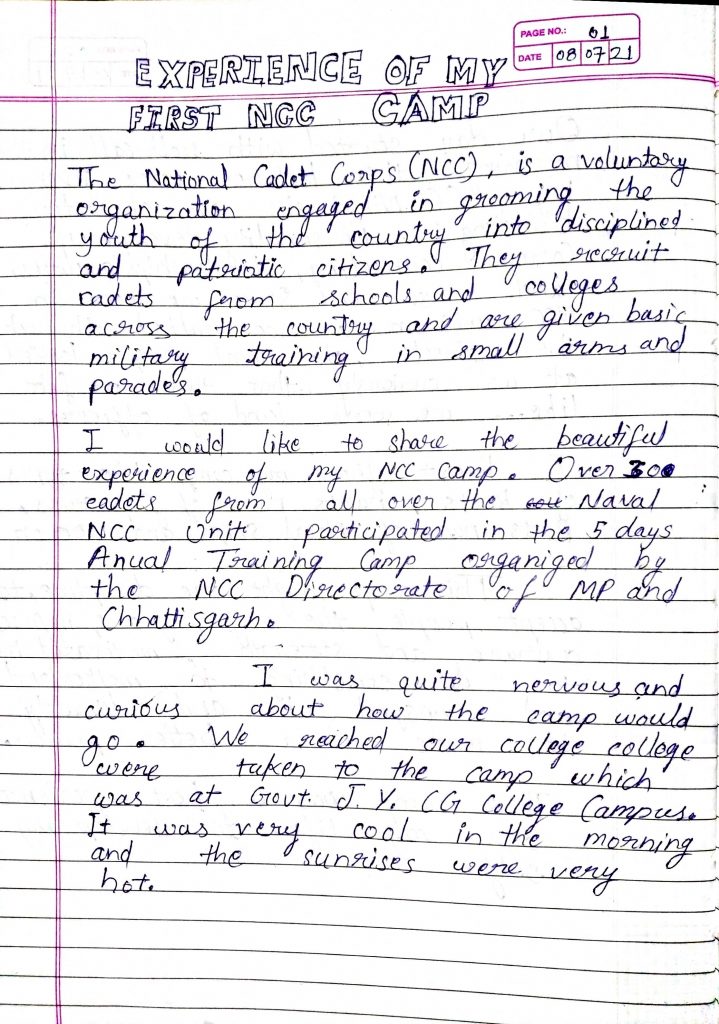 PAGE NO.: 01
DATE 08 07 21
EXPERIENCE OF MY
FIRST NCC CAMP
The National Cadet Corps (NCC), is a voluntary
organization engaged in grooming the
youth of the country into disciplined
and patriatic citizens. They recruit
cadets from schools and colleges
across the country and are given basic
military training in small arms and
parades.
I would like to share the beautiful
experience of my NCC Camp. Over 300
cadets from all over the Naval
NCC Unit participated in the 5 days
Anual Training Camp organiged by
the NCC Directorate of MP and
Chhattisgarh.
I was quite nervous and
curious about how the camp would
go. We reached our college college
were taken to the camp which
was at Govt. J. Y. CG College Campus.
It was very cool in the morning
and the sunrises were very
hot.